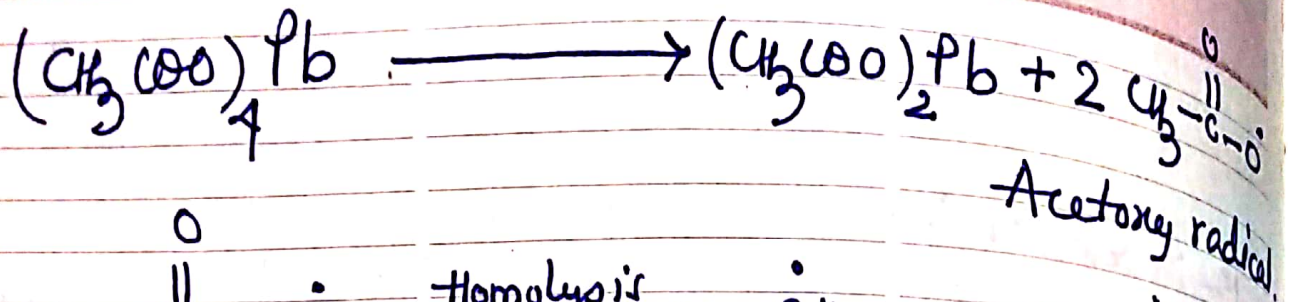 (CH₃COO)₄Pb ⟶ (CH₃COO)₂Pb + 2 CH₃-C(=O)-O•
Acetoxy radical
O
|| • Homolysis •